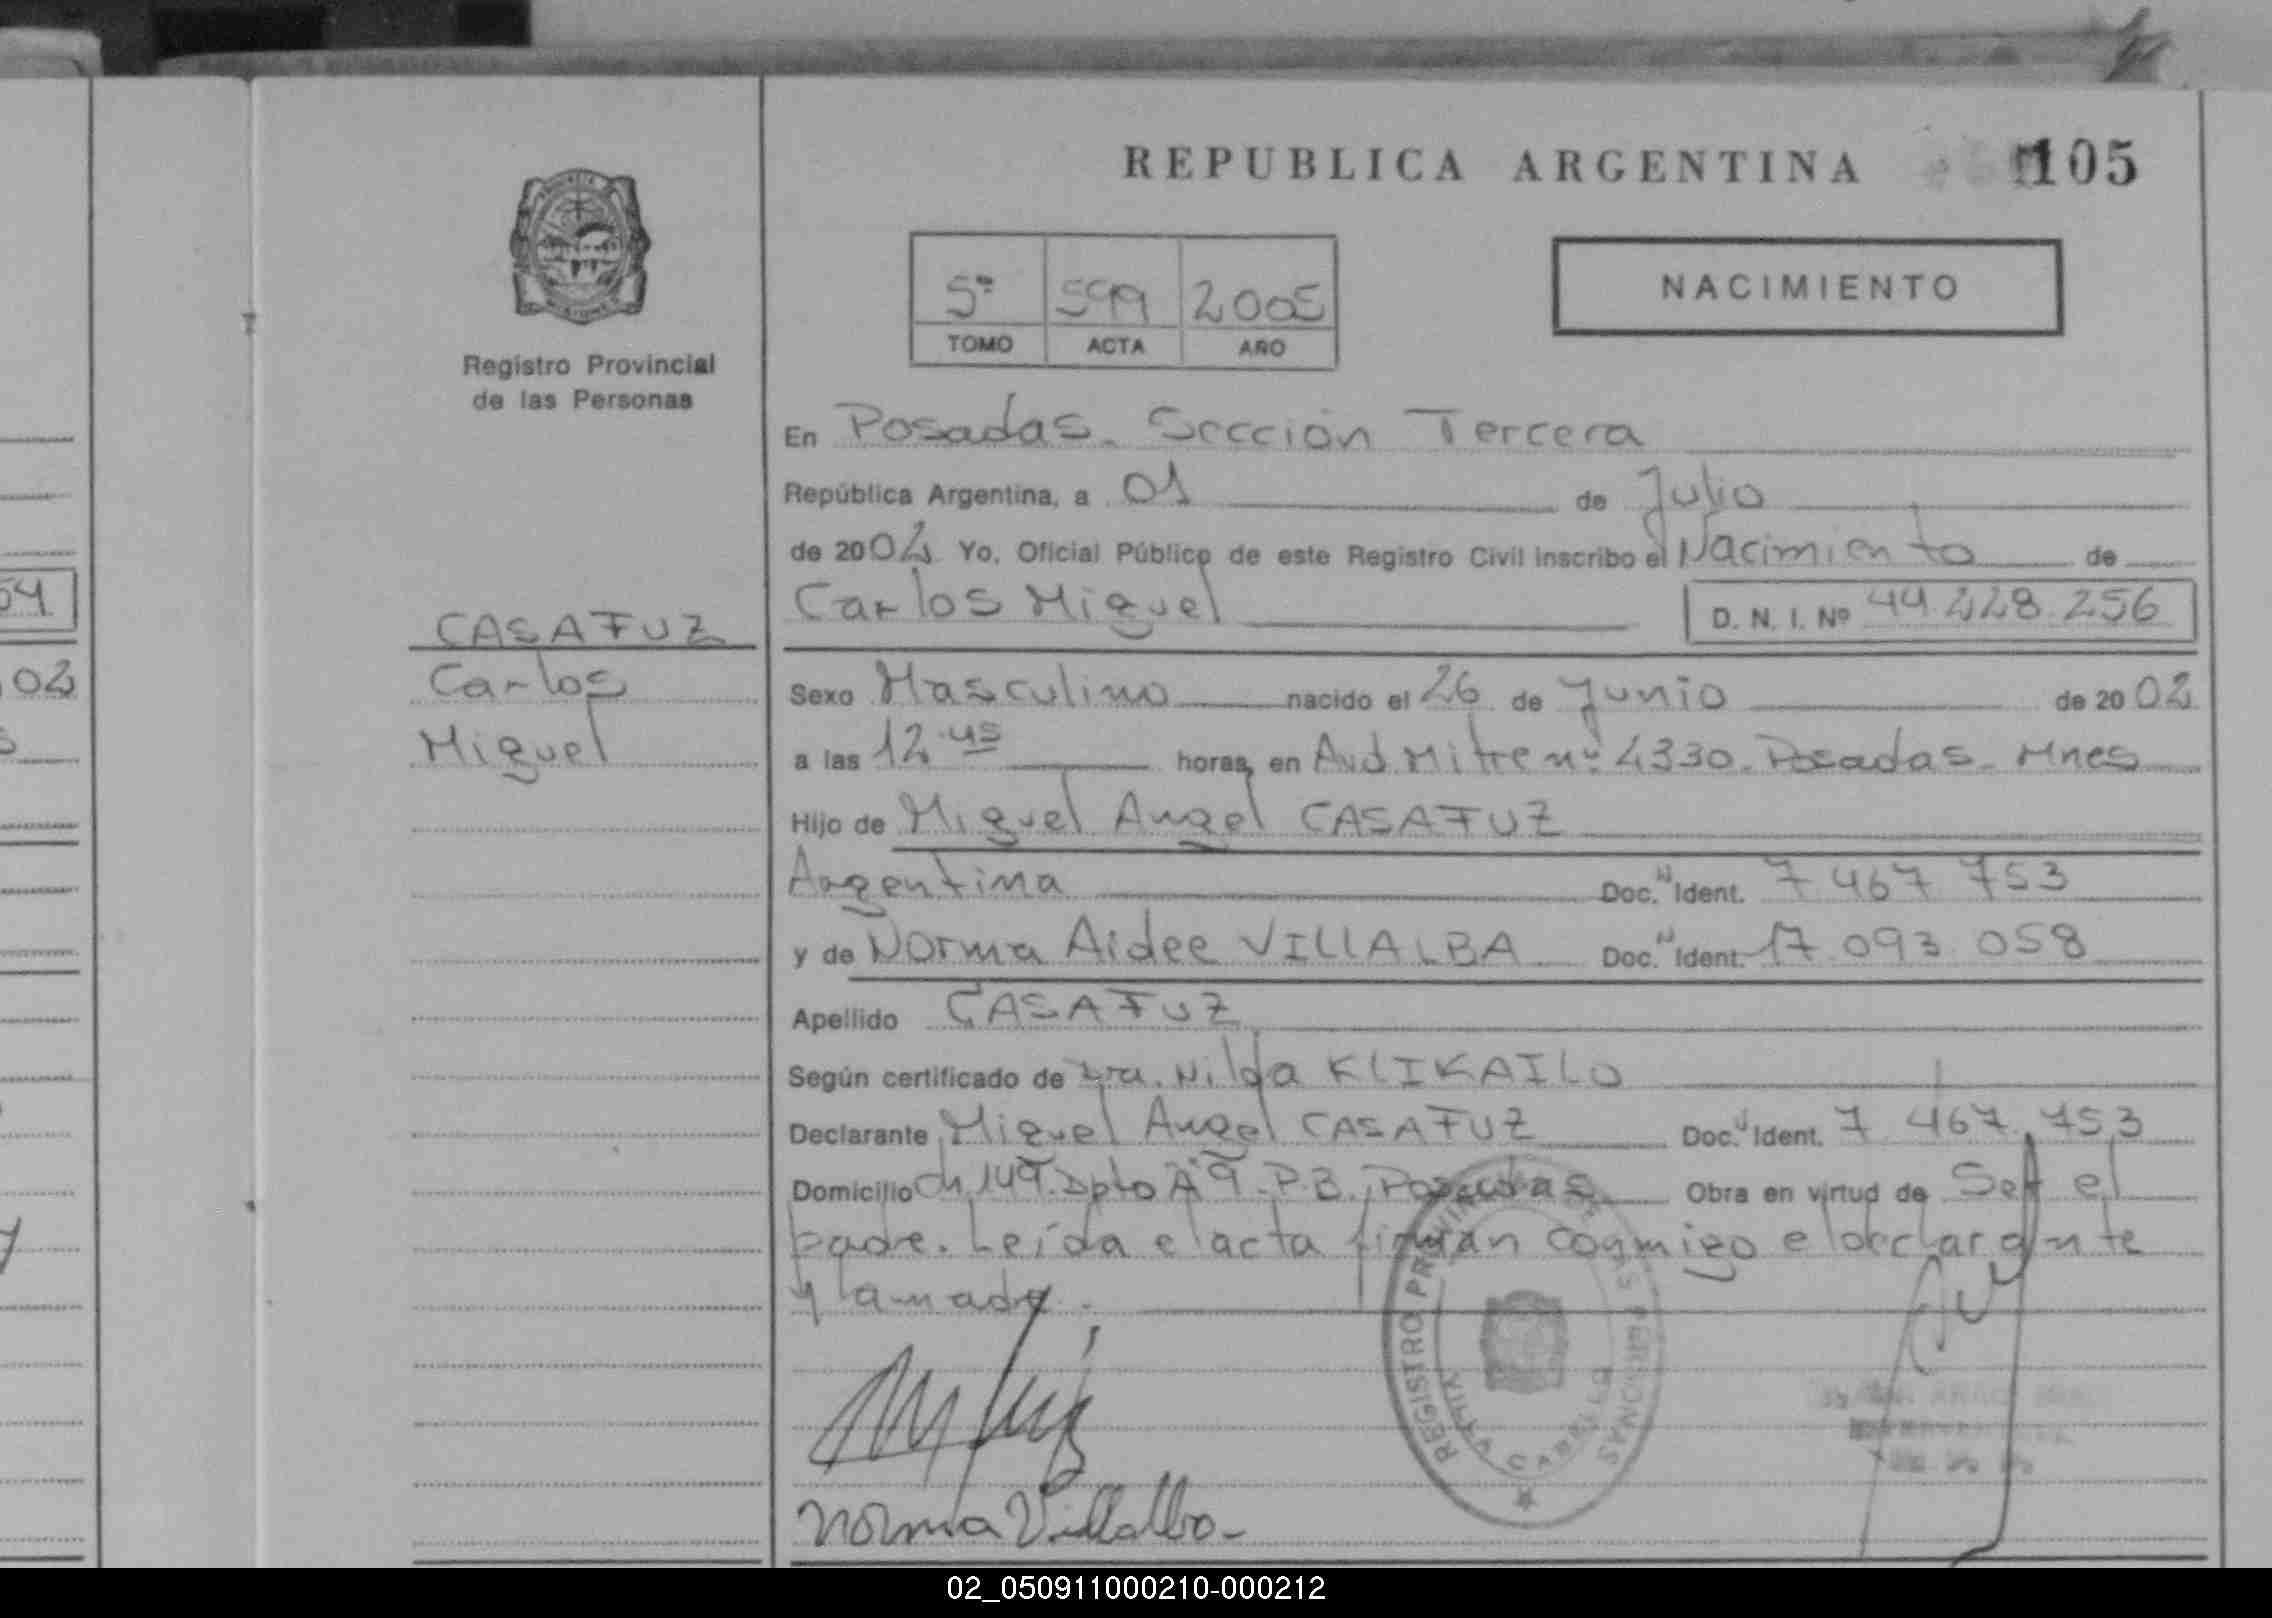 REPUBLICA ARGENTINA
105
5º 599 2005
TOMO ACTA AÑO
NACIMIENTO
Registro Provincial
de las Personas
En Posadas. Sección Tercera
República Argentina, a 01 de Julio
de 2002 Yo, Oficial Público de este Registro Civil inscribo el Nacimiento de
Carlos Miguel
D. N. I. Nº 44.228.256
54
CASAFUZ
Carlos
Miguel
02
Sexo Masculino nacido el 26 de Junio de 20 02
a las 12.45 horas, en Avd. Mitre nº 4330. Posadas. Mnes
Hijo de Miguel Angel CASAFUZ
Argentina Doc. Ident. 7 467 753
y de Norma Aidee VILLALBA Doc. Ident. 17.093.058
Apellido CASAFUZ
Según certificado de Dra. Nilda KLIKAILO
Declarante Miguel Angel CASAFUZ Doc. Ident. 7.467.753
Domicilio Ch 149. Dpto A 9 - P.B. Posadas Obra en virtud de Ser el
padre. Leída el acta firman conmigo el declarante
y la madre.
REGISTRO PROVINCIAL DE LAS PERSONAS
VILLA CABELLO
Norma Villalba
02_050911000210-000212